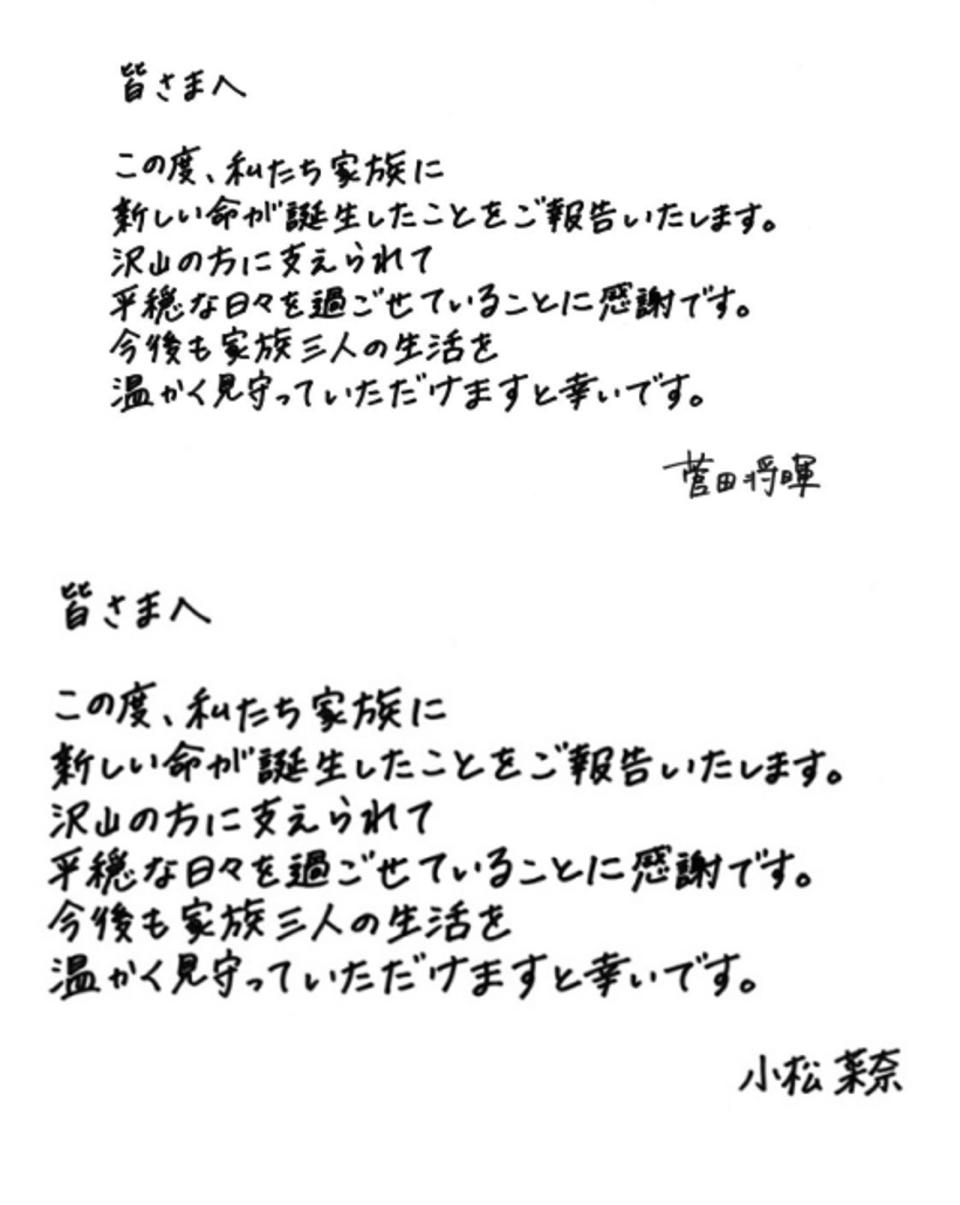 皆さまへ
この度、私たち家族に
新しい命が誕生したことをご報告いたします。
沢山の方に支えられて
平穏な日々を過ごせていることに感謝です。
今後も家族三人の生活を
温かく見守っていただけますと幸いです。
菅田将暉
皆さまへ
この度、私たち家族に
新しい命が誕生したことをご報告いたします。
沢山の方に支えられて
平穏な日々を過ごせていることに感謝です。
今後も家族三人の生活を
温かく見守っていただけますと幸いです。
小松菜奈